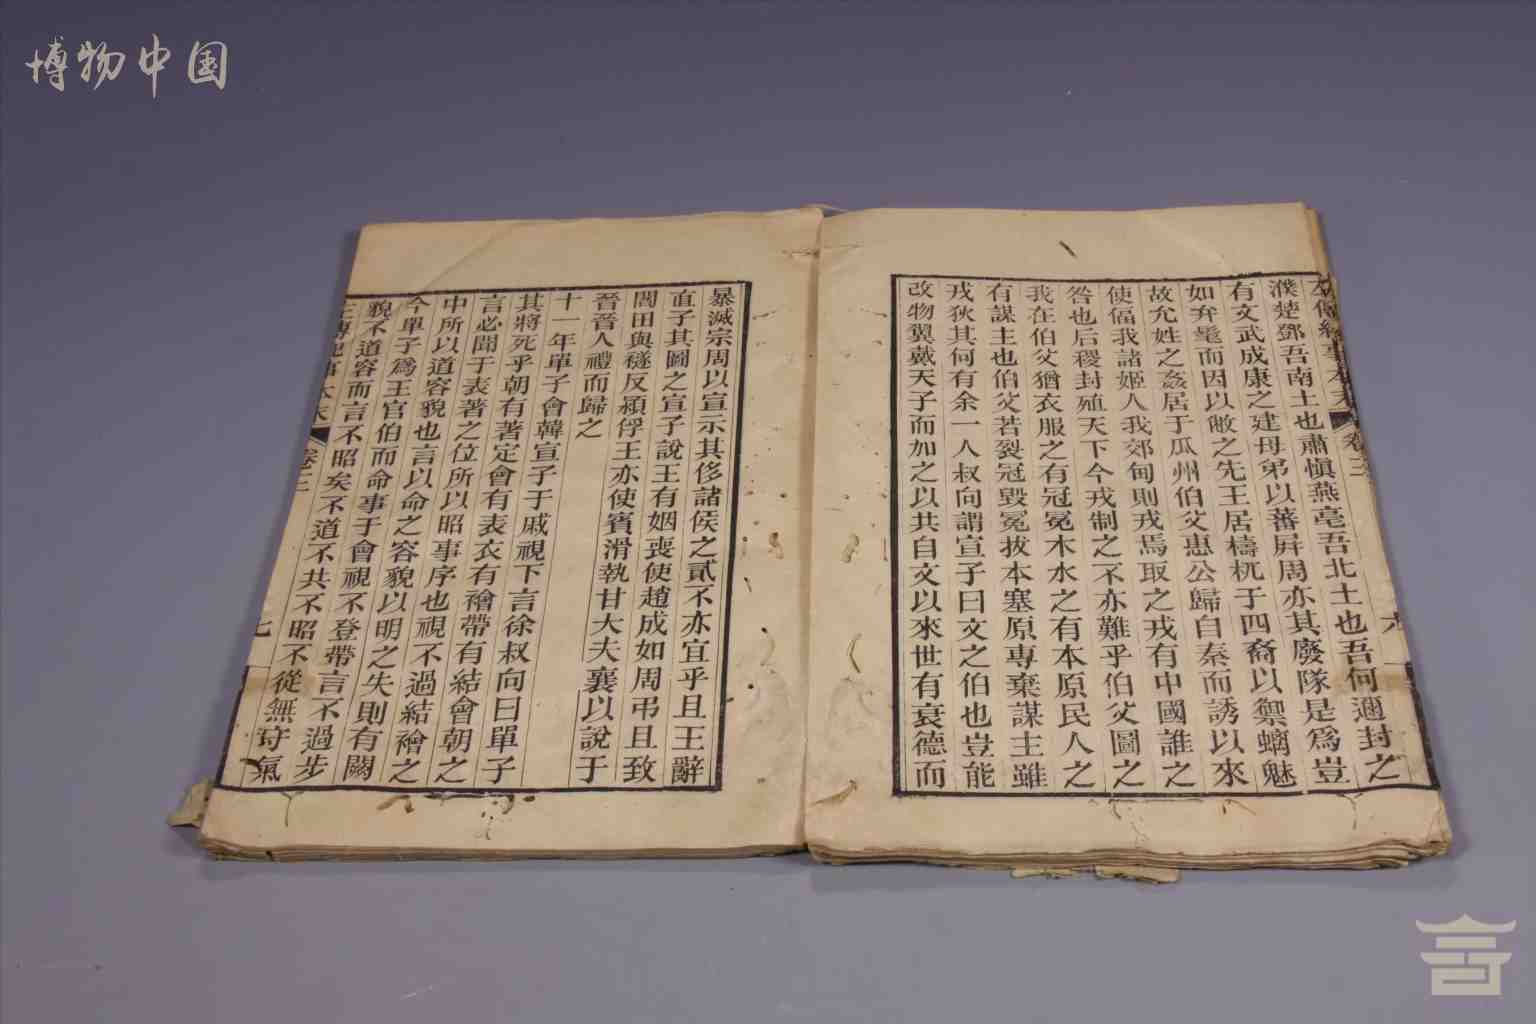 博物中国
左傳紀事本末 卷三 六
濮楚鄧吾南土也肅愼燕亳吾北土也吾何邇封之
有文武成康之建母弟以蕃屏周亦其廢隊是爲豈
如弁髦而因以敝之先王居檮杌于四裔以禦螭魅
故允姓之姦居于瓜州伯父惠公歸自秦而誘以來
使偪我諸姬入我郊甸則戎焉取之戎有中國誰之
咎也后稷封殖天下今戎制之不亦難乎伯父圖之
我在伯父猶衣服之有冠冕木水之有本原民人之
有謀主也伯父若裂冠毀冕拔本塞原專棄謀主雖
戎狄其何有余一人叔向謂宣子曰文之伯也豈能
改物翼戴天子而加之以共自文以來世有衰德而
暴滅宗周以宣示其侈諸侯之貳不亦宜乎且王辭
直子其圖之宣子說王有姻喪使趙成如周弔且致
閻田與襚反潁俘王亦使賓滑執甘大夫襄以說于
晉晉人禮而歸之
十一年單子會韓宣子于戚視下言徐叔向曰單子
其將死乎朝有著定會有表衣有襘帶有結會朝之
言必聞于表著之位所以昭事序也視不過結襘之
中所以道容貌也言以命之容貌以明之失則有闕
今單子爲王官伯而命事于會視不登帶言不過步
貌不道容而言不昭矣不道不共不昭不從無守氣
左傳紀事本末 卷三 七